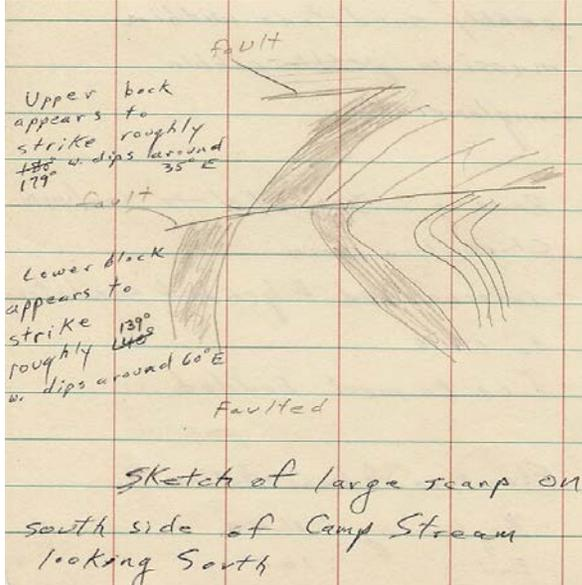 fault
Upper bock
appears to
strike roughly
w. dips around
179° 35° E
fault
Lower block
appears to
strike 139°
roughly
w. dips around 60° E
Faulted
Sketch of large scarp on
south side of Camp Stream
looking South